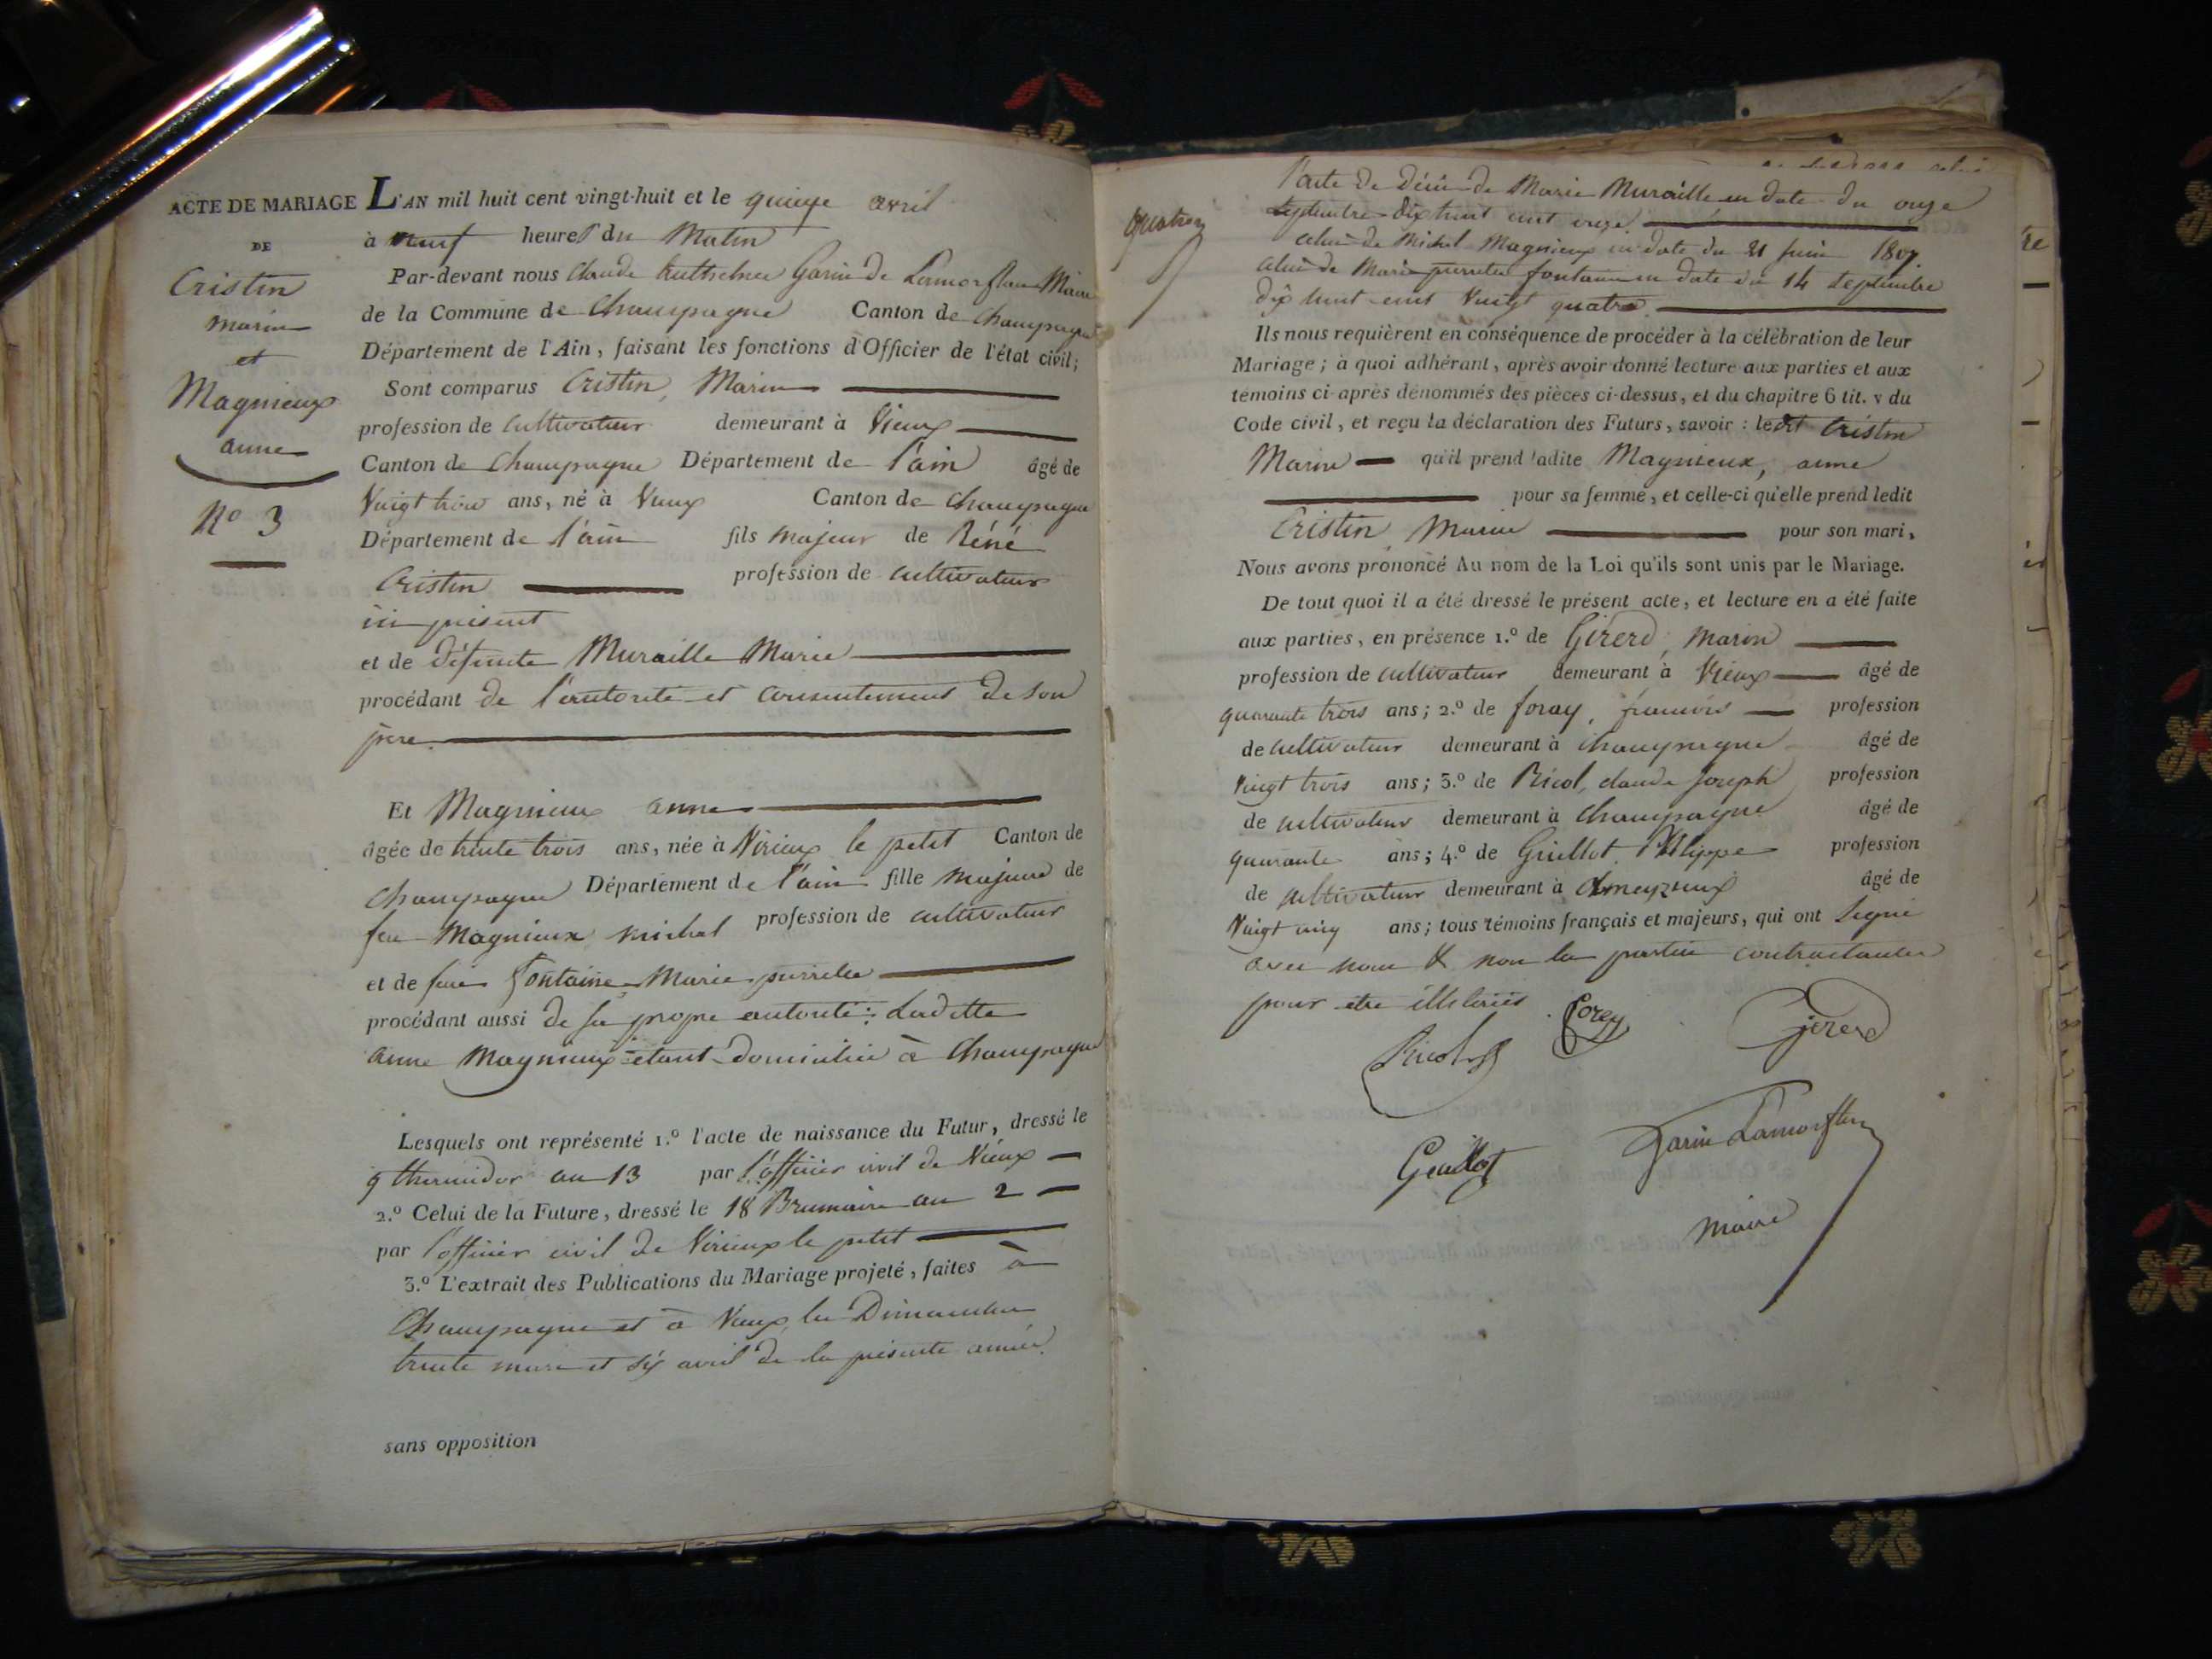 ACTE DE MARIAGE
DE
Cristin
marin
et
Magnieux
anne
N° 3
L'AN mil huit cent vingt-huit et le quinze avril
à neuf heures du Matin
Par-devant nous Claude Garin de Lamorflan Maire
de la Commune de Champagne Canton de Champagne
Département de l'Ain, faisant les fonctions d'Officier de l'état civil;
Sont comparus Cristin, Marin
profession de cultivateur demeurant à Vieux
Canton de Champagne Département de l'ain âgé de
Vingt trois ans, né à Vieux Canton de Champagne
Département de l'ain fils majeur de Réné
Cristin profession de cultivateur
ici présent
et de défunte Muraille Marie
procédant de l'autorité et consentement de son
père.
Et Magnieux anne
âgée de trente trois ans, née à Virieux le petit Canton de
Champagne Département de l'ain fille majeure de
feu Magnieux michel profession de cultivateur
et de feue Fontaine Marie pierrette
procédant aussi de sa propre autorité: Laditte
anne Magnieux étant domiciliée à Champagne
Lesquels ont représenté 1.º l'acte de naissance du Futur, dressé le
9 thermidor an 13 par l'officier civil de Vieux
2.º Celui de la Future, dressé le 18 Brumaire an 2
par l'officier civil de Virieux le petit
3.º L'extrait des Publications du Mariage projeté, faites à
Champagne et à Vieux, les Dimanches
trente mars et six avril de la présente année.
sans opposition
quatre
l'acte de décès de Marie Muraille en date du onze
septembre dix huit cent onze.
celui de Michel Magnieux en date du 21 juin 1807.
celui de Marie pierrette fontaine en date du 14 septembre
dix huit cent vingt quatre.
Ils nous requièrent en conséquence de procéder à la célébration de leur
Mariage; à quoi adhérant, après avoir donné lecture aux parties et aux
témoins ci-après dénommés des pièces ci-dessus, et du chapitre 6 tit. v du
Code civil, et reçu la déclaration des Futurs, savoir: ledit Cristin
Marin qu'il prend ladite Magnieux, anne
pour sa femme, et celle-ci qu'elle prend ledit
Cristin Marin pour son mari,
Nous avons prononcé Au nom de la Loi qu'ils sont unis par le Mariage.
De tout quoi il a été dressé le présent acte, et lecture en a été faite
aux parties, en présence 1.º de Girerd, Marin
profession de cultivateur demeurant à Vieux âgé de
quarante trois ans; 2.º de foray, françois profession
de cultivateur demeurant à Champagne âgé de
Vingt trois ans; 3.º de Ricol, claude joseph profession
de cultivateur demeurant à Champagne âgé de
quarante ans; 4.º de Guillot, Philippe profession
de cultivateur demeurant à Ameyzieux âgé de
Vingt cinq ans; tous témoins français et majeurs, qui ont signé
avec nous & non les parties contractantes
pour être illitérés.
Forey
Girerd
Ricol
Guillot
Garin Lamorflan
maire